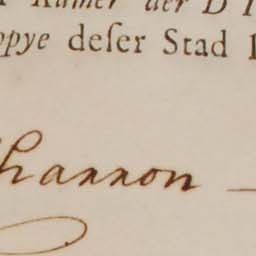 Kamer der D
ppye deſer Stad
hannon